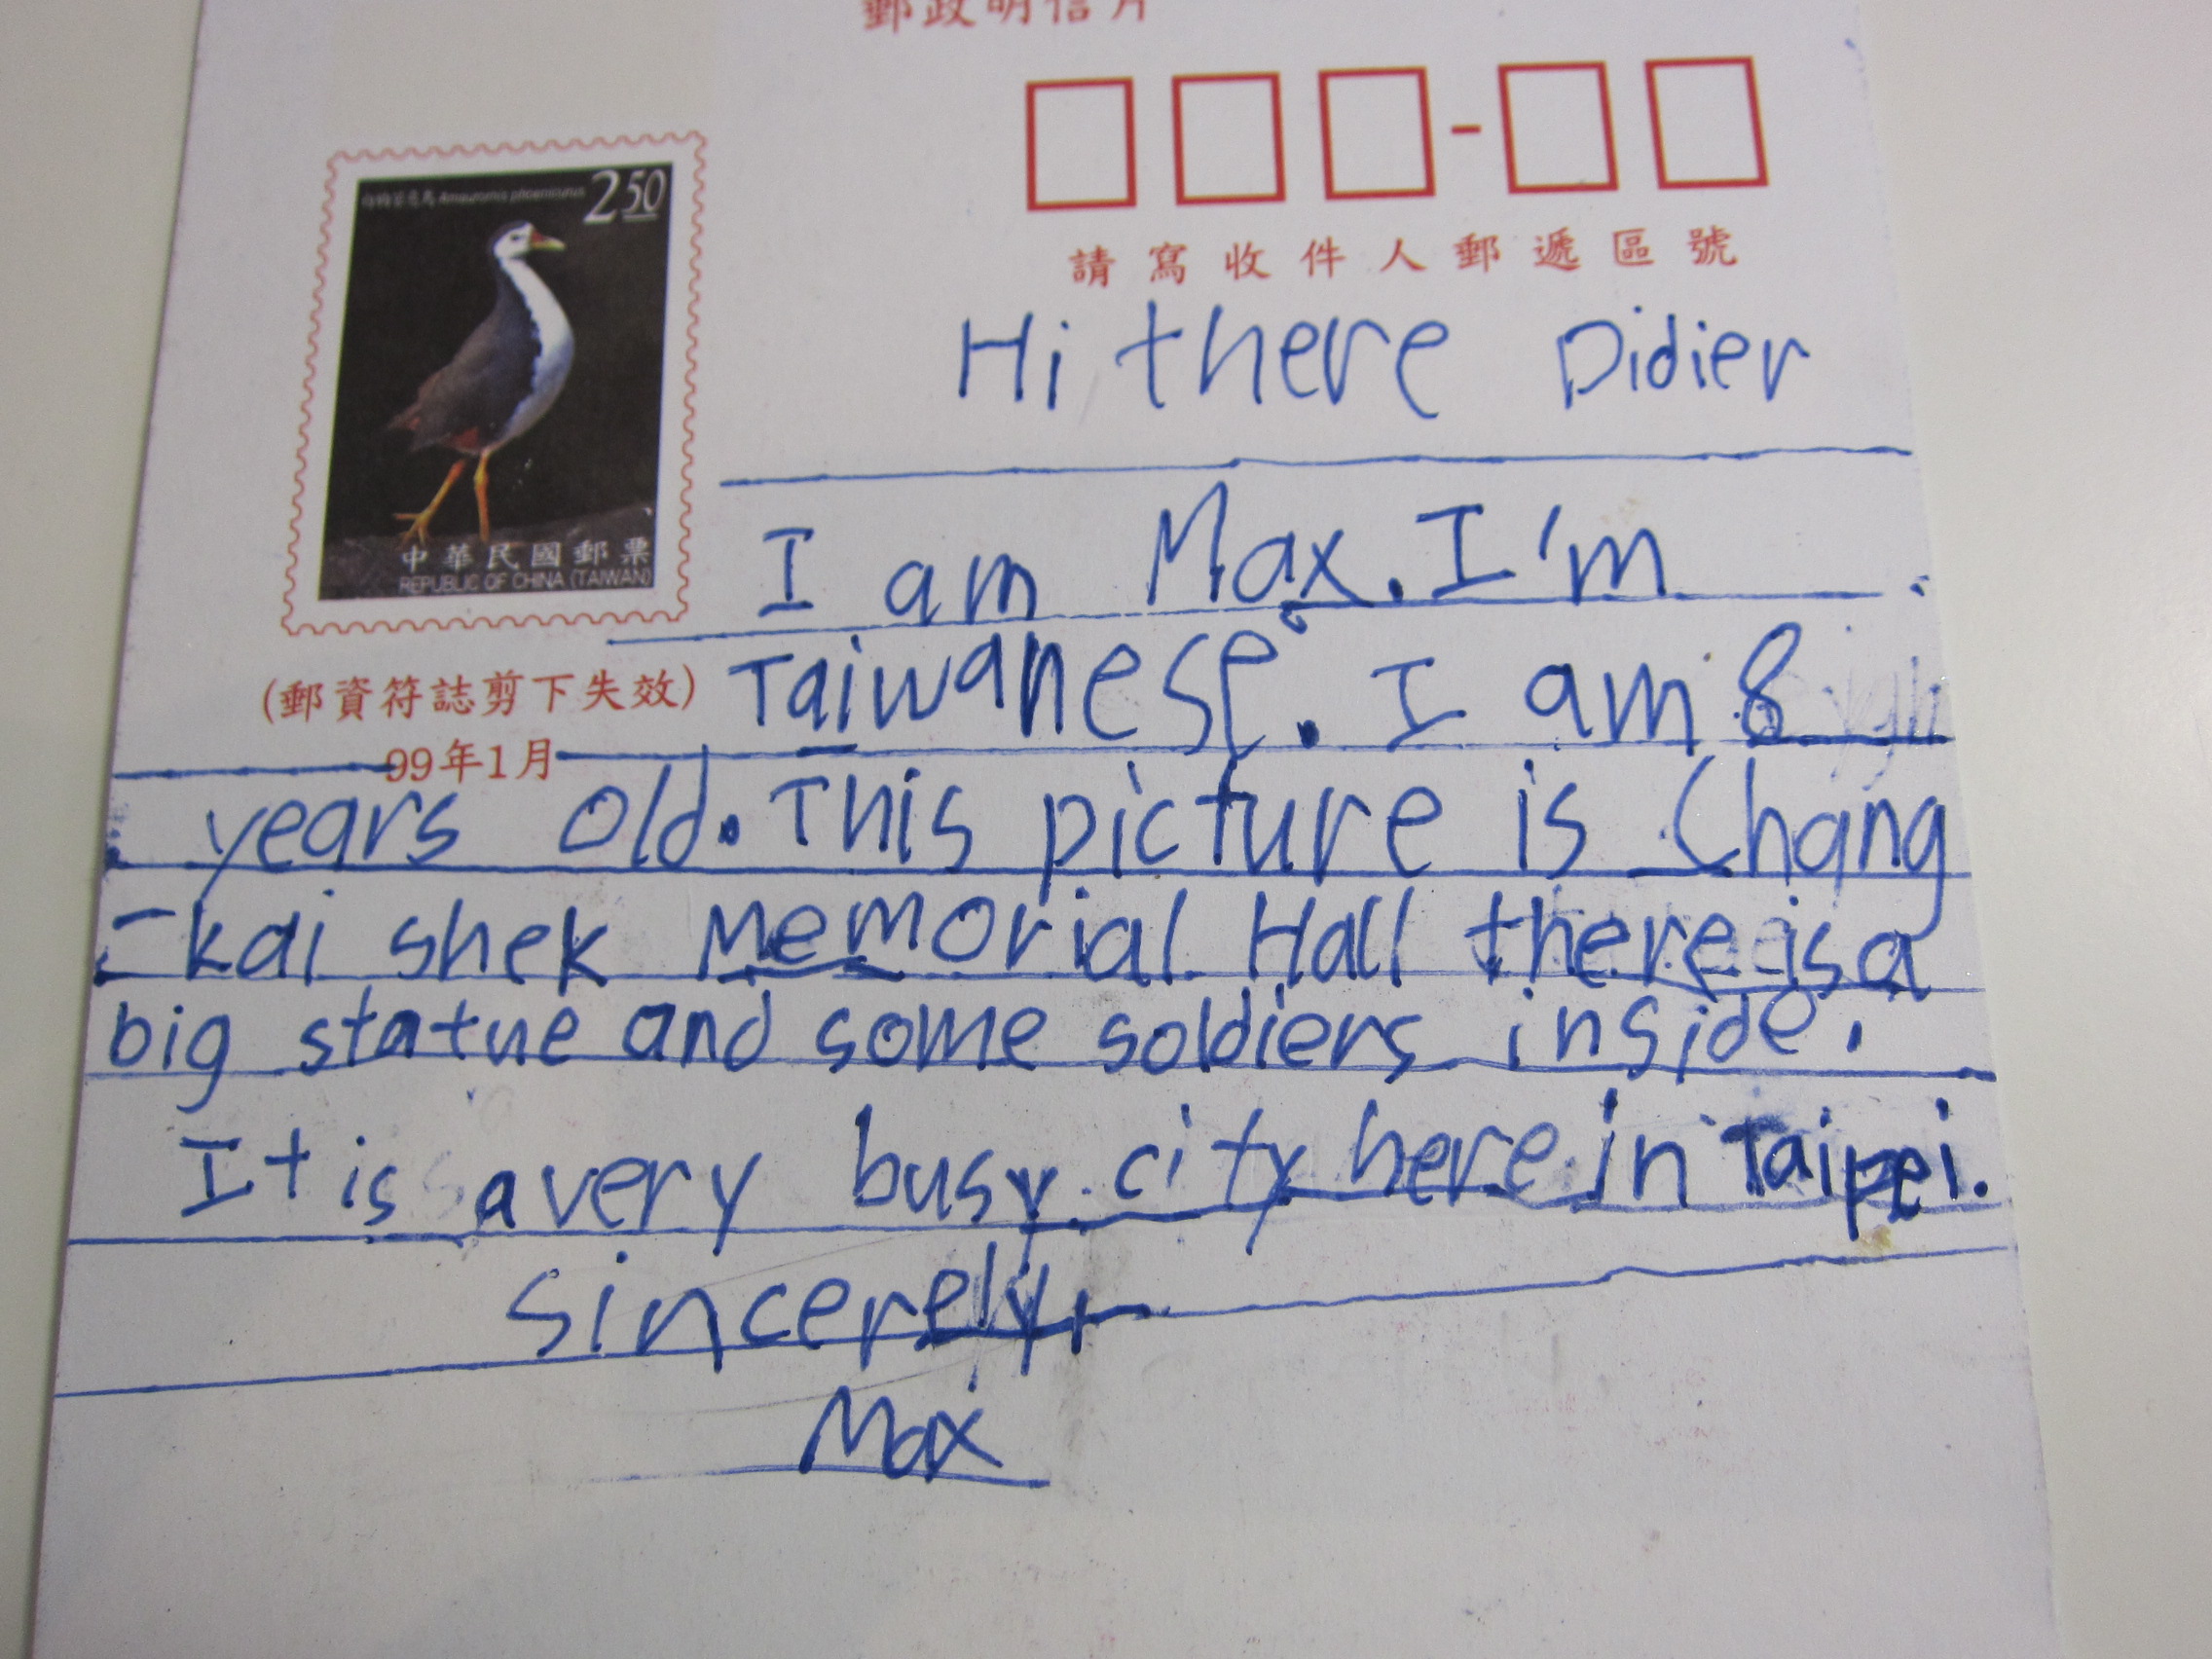 郵政明信片
2 50
Amaurornis phoenicurus
請寫收件人郵遞區號
中華民國郵票
REPUBLIC OF CHINA (TAIWAN)
(郵資符誌剪下失效)
99年1月
Hi there Didier
I am Max. I'm
Taiwanese. I am 8
years old. This picture is Chang
-kai shek Memorial Hall there is a
big statue and some soldiers inside.
It is a very busy city here in Taipei.
Sincerely,
Max